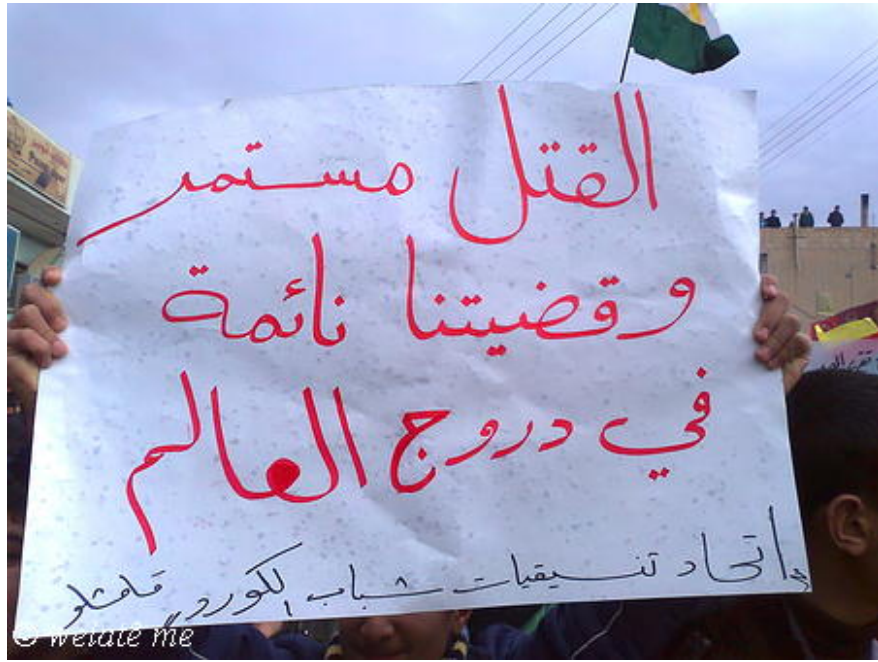 القتل مستمر
و قضيتنا نائمة
في دروج العالم
إتحاد تنسيقيات شباب الكورد قامشلو
© welatê me